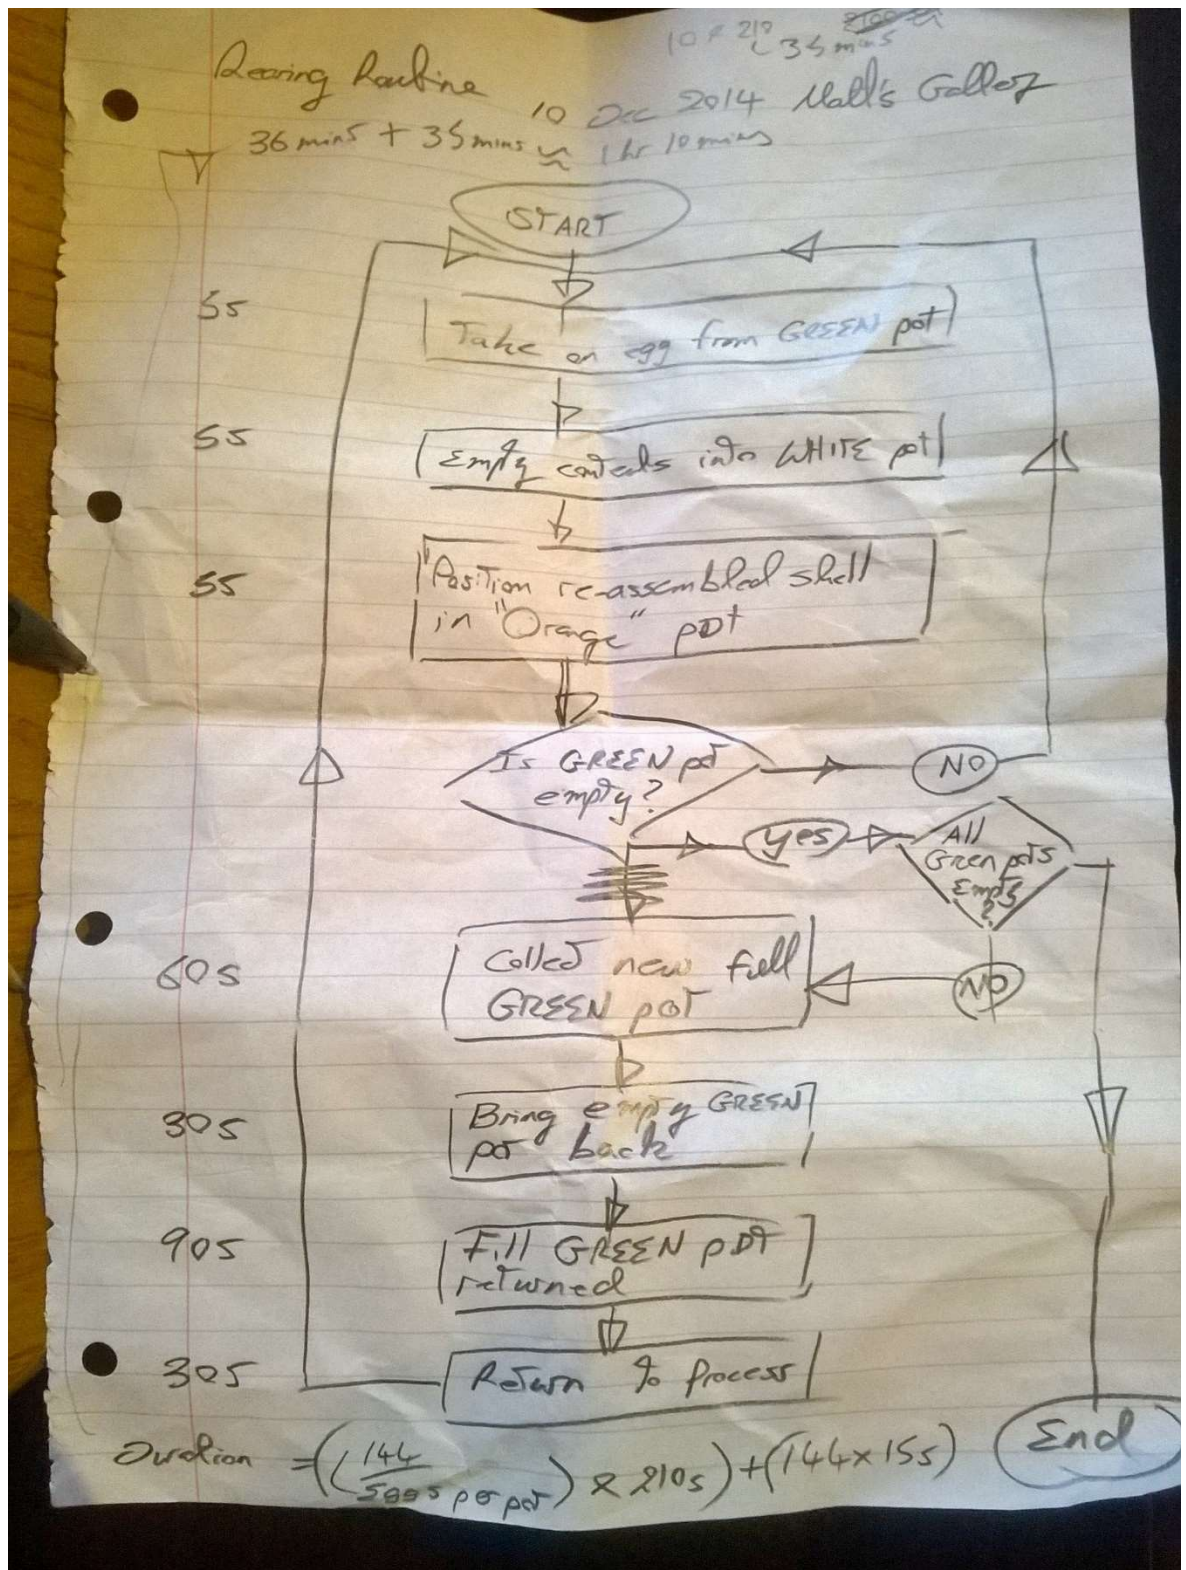 10 × 210
35 mins
Rearing Routine 10 Dec 2014 Matt's Gallery
36 mins + 35 mins ≈ 1 hr 10 mins
START
5s
Take an egg from GREEN pot
5s
Empty contents into WHITE pot
5s
Position re-assembled shell
in "Orange" pot
Is GREEN pot
empty?
NO
yes
All
Green pots
Empty
?
60s
Collect new full
GREEN pot
NO
30s
Bring empty GREEN
pot back
90s
Fill GREEN pot
returned
30s
Return to Process
End
Duration = ((144 / eggs per pot) × 210s) + (144 × 15s)